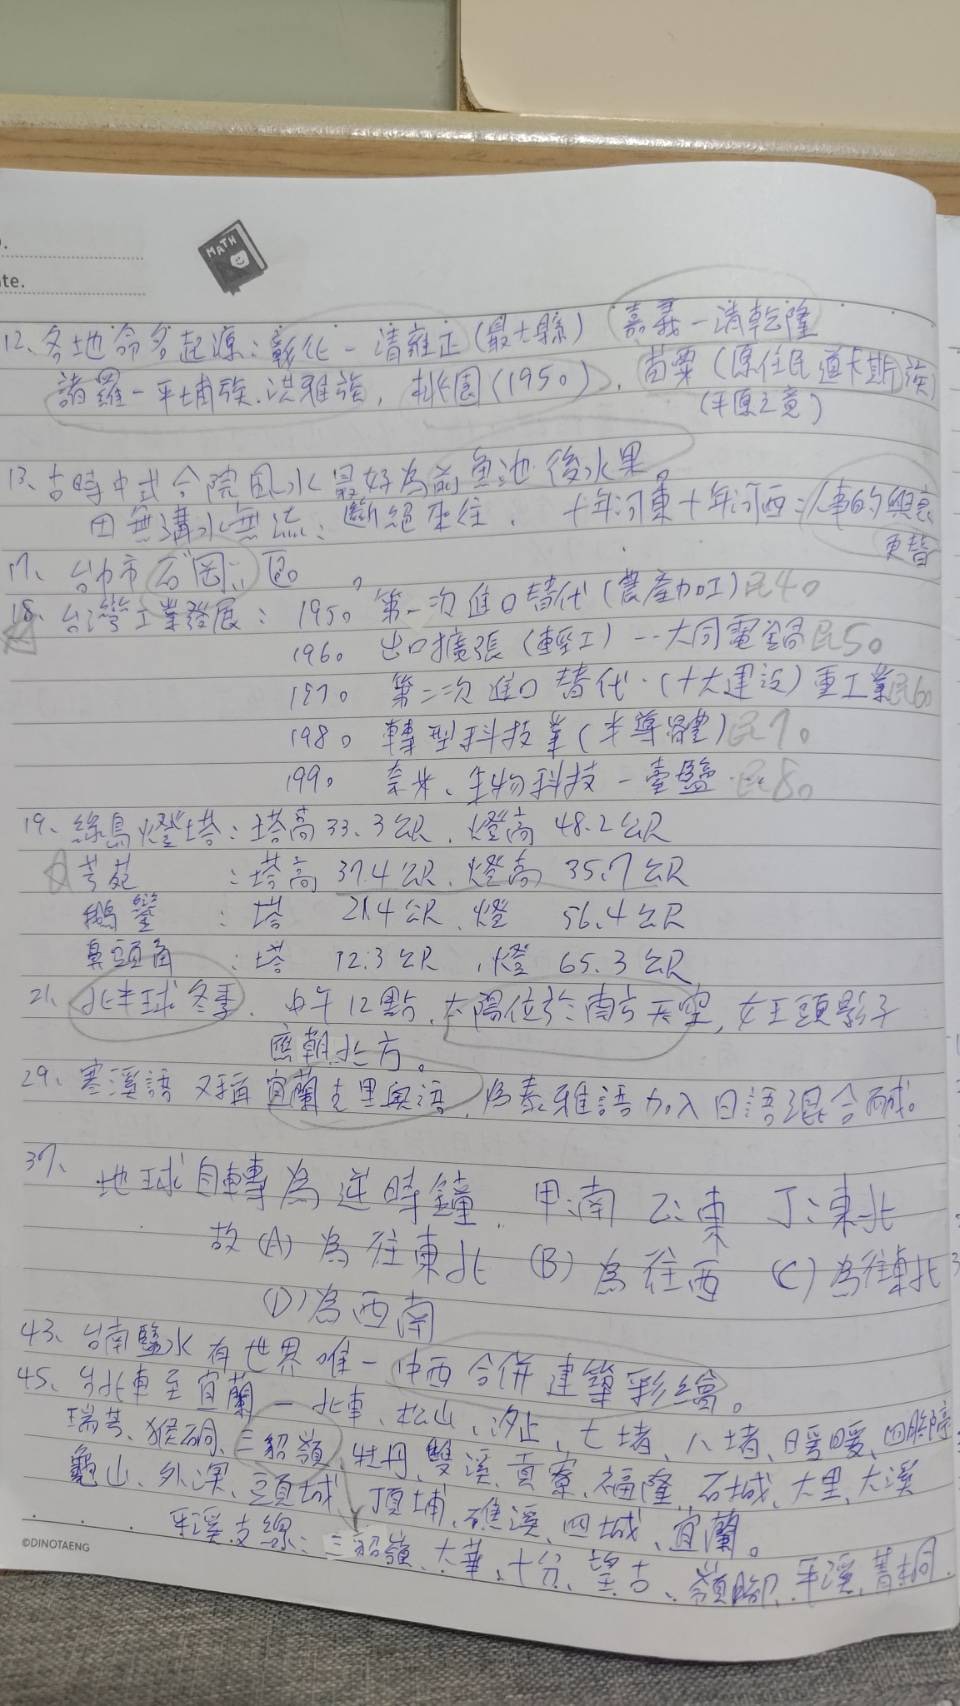 ate.
MATH
12、各地命名起源：彰化－清雍正(最大縣) 嘉義－清乾隆
諸羅－平埔族.洪雅族, 桃園(1950), 苗栗(原住民道卡斯族)
(平原之意)
13、古時中式合院風水最好為前魚池後水果。
田無溝水無流：斷絕來往. 十年河東十年河西：人事的興衰
更替
17、台中市石岡區。
18、台灣工業發展： 1950 第一次進口替代(農產加工)民40
1960 出口擴張(輕工)--大同電鍋民50
1970 第二次進口替代.(十大建設)重工業民60
1980 轉型科技業(半導體)民70
1990 奈米、生物科技－臺鹽 民80
19、綠島燈塔：塔高33.3公尺. 燈高48.2公尺
芳苑 ：塔高37.4公尺. 燈高35.7公尺
鵝鑾 ：塔 21.4公尺. 燈 56.4公尺
鼻頭角 ：塔 12.3公尺 , 燈 65.3公尺
21、北半球冬季. 中午12點, 太陽位於南方天空, 女王頭影子
應朝北方。
29、寒溪語又稱宜蘭克里奧語, 為泰雅語加入日語混合而成。
37、地球自轉為逆時鐘. 甲:南 乙:東 丁:東北
故(A)為往東北 (B)為往西 (C)為往東北
(D)為西南
43、台南鹽水有世界唯一中西合併建築彩繪。
45、台北車至宜蘭－北車、松山、汐止、七堵、八堵、暖暖、四腳亭
瑞芳、猴硐、三貂嶺、牡丹、雙溪、貢寮、福隆、石城、大里、大溪
龜山、外澳、頭城、頂埔、礁溪、四城、宜蘭。
平溪支線：三貂嶺、大華、十分、望古、嶺腳、平溪、菁桐.
©DINOTAENG